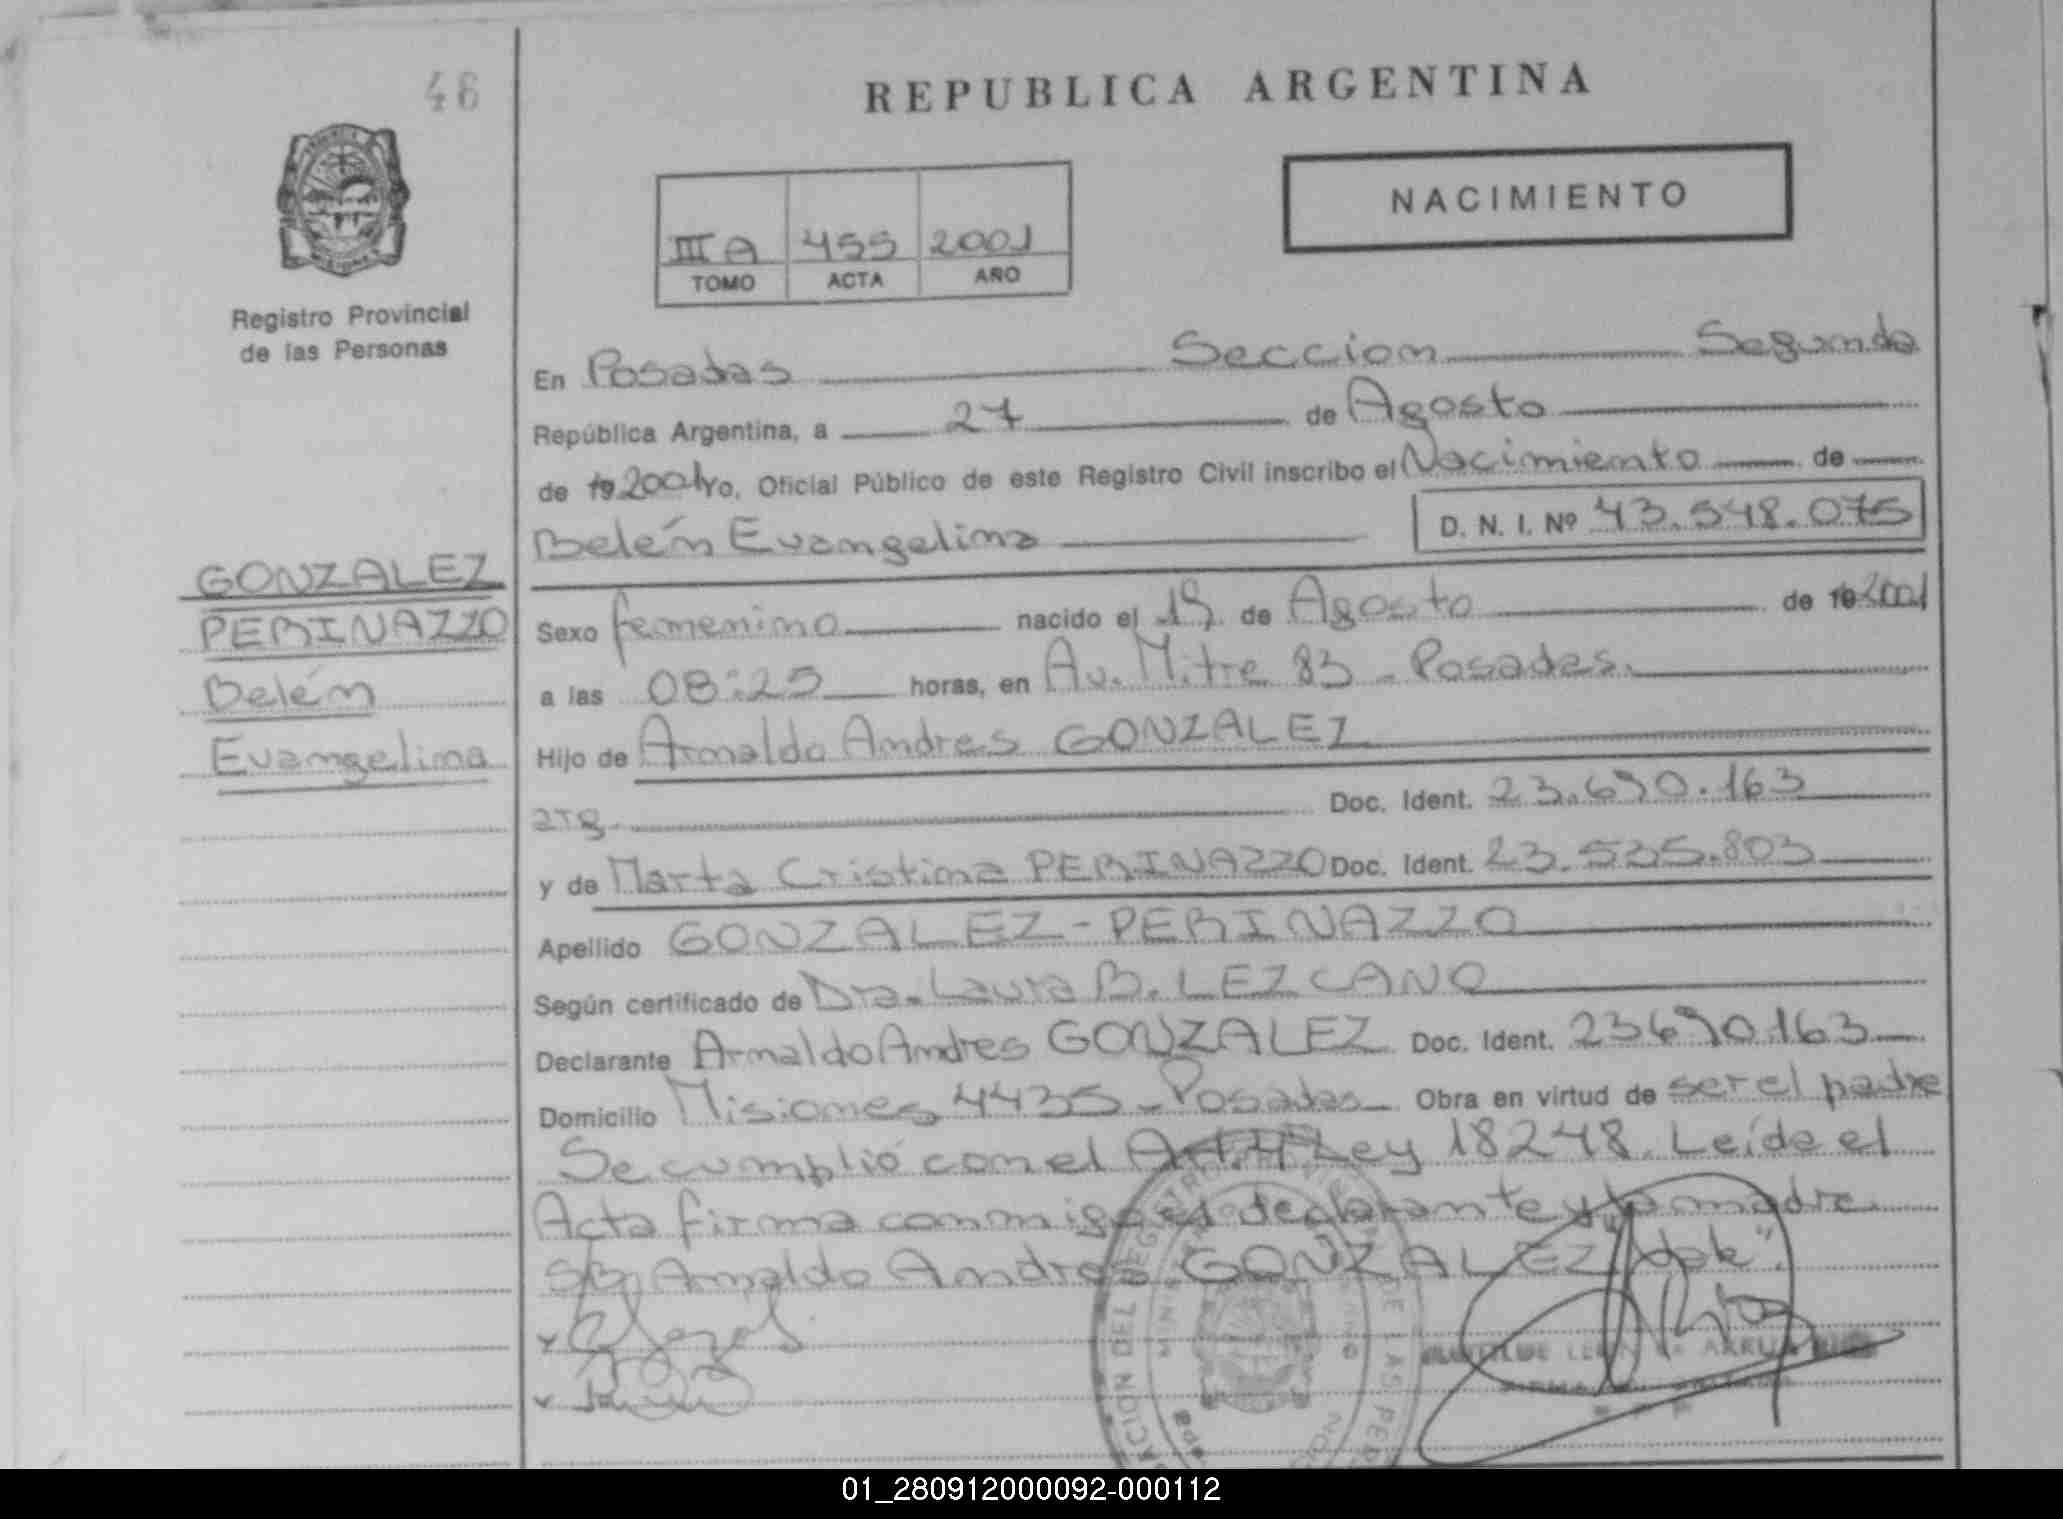 46
REPUBLICA ARGENTINA
NACIMIENTO
III A 455 2001
TOMO ACTA AÑO
Registro Provincial
de las Personas
En Posadas Seccion Segunda
República Argentina, a 27 de Agosto
de 19 2001 yo, Oficial Público de este Registro Civil inscribo el Nacimiento de
Belén Evangelina D. N. I. Nº 43.548.075
GONZALEZ
PERINAZZO
Belén
Evangelina
Sexo femenino nacido el 19 de Agosto de 19 2001
a las 08:25 horas, en Av. Mitre 83 - Posadas.
Hijo de Arnaldo Andres GONZALEZ
arg. Doc. Ident. 23.690.163
y de Marta Cristina PERINAZZO Doc. Ident. 23.535.803
Apellido GONZALEZ-PERINAZZO
Según certificado de Dra. Laura B. LEZCANO
Declarante Arnaldo Andres GONZALEZ Doc. Ident. 23690.163
Domicilio Misiones 4435 - Posadas Obra en virtud de ser el padre
Se cumplió con el Ley 18248. Leída el
Acta firma conmigo el declarante y la madre.
S/B Arnaldo Andres GONZALEZ "Vale".
REGISTRO DE LAS
01_280912000092-000112